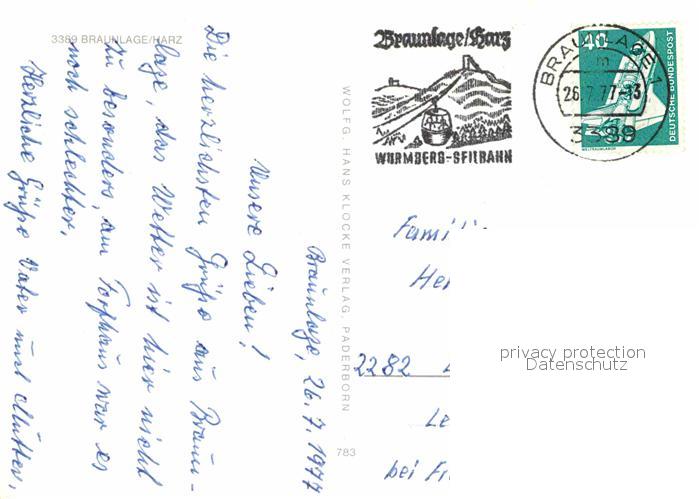 3389 BRAUNLAGE/HARZ
Braunlage, 26.7.1977
Unsere Lieben!
Die herzlichsten Grüße aus Braun-
lage, das Wetter ist hier nicht
zu besonders, am Torfhaus war es
noch schlechter.
Herzliche Grüße Vater und Mutter.
WOLFG. HANS KLOCKE VERLAG, PADERBORN
783
Braunlage/Harz
WURMBERG-SEILBAHN
BRAUNLAGE 1
m
26.7.77-13
3389
40
DEUTSCHE BUNDESPOST
WELTRAUMLABOR
Fami
He
2282
Le
bei Fr
privacy protection
Datenschutz